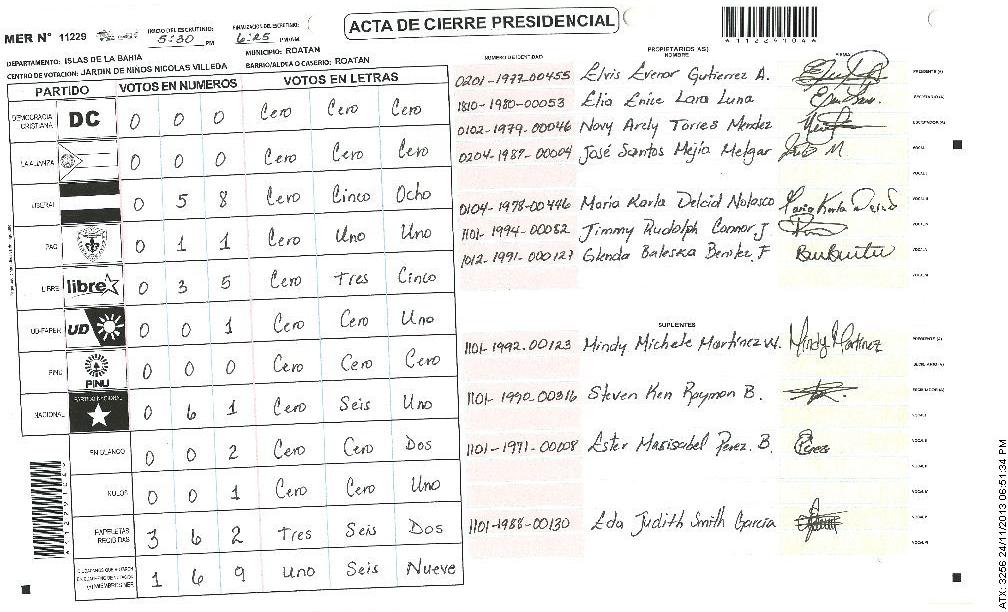 ACTA DE CIERRE PRESIDENCIAL
A11229104A
MER Nº 11229
INICIO DEL ESCRUTINIO: 5:30 PM
FINALIZACION DEL ESCRUTINIO: 6:25 PM/AM
DEPARTAMENTO: ISLAS DE LA BAHIA
MUNICIPIO: ROATAN
CENTRO DE VOTACION: JARDIN DE NIÑOS NICOLAS VILLEDA
BARRIO/ALDEA O CASERIO: ROATAN
PARTIDO VOTOS EN NUMEROS VOTOS EN LETRAS
DEMOCRACIA CRISTIANA DC 0 0 0 Cero Cero Cero
LA ALIANZA 0 0 0 Cero Cero Cero
LIBERAL 0 5 8 Cero Cinco Ocho
PAC 0 1 1 Cero Uno Uno
LIBRE libre 0 3 5 Cero Tres Cinco
UD-FAPER UD 0 0 1 Cero Cero Uno
PINU PINU 0 0 0 Cero Cero Cero
NACIONAL PARTIDO NACIONAL 0 6 1 Cero Seis Uno
EN BLANCO 0 0 2 Cero Cero Dos
NULOS 0 0 1 Cero Cero Uno
PAPELETAS RECIBIDAS 3 6 2 Tres Seis Dos
1 6 9 Uno Seis Nueve
NUMERO DE IDENTIDAD PROPIETARIOS (AS) NOMBRE FIRMA
0201-1977-00455 Elvis Evenor Gutierrez A. PRESIDENTE (A)
1810-1980-00053 Elia Enice Lara Luna SECRETARIO (A)
0102-1979-00046 Novy Arely Torres Mendez ESCRUTADOR (A)
0204-1987-00004 José Santos Mejía Melgar VOCAL I
VOCAL II
0104-1978-00446 Maria Karla Delcid Nolasco VOCAL III
1101-1994-00052 Jimmy Rudolph Connor J. VOCAL IV
1012-1991-000127 Glenda Baleska Benitez F VOCAL V
VOCAL VI
SUPLENTES
1101-1992-00123 Mindy Michele Martinez W. Mindy Martinez PRESIDENTE (A)
SECRETARIO (A)
1101-1990-00316 Steven Ken Raymon B. ESCRUTADOR (A)
VOCAL I
1101-1971-00008 Ester Marisabel Perez. B. Perez VOCAL II
VOCAL III
VOCAL IV
1101-1988-00130 Eda Judith Smith Garcia VOCAL V
VOCAL VI
ATX: 3256 24/11/2013 06:51:34 PM